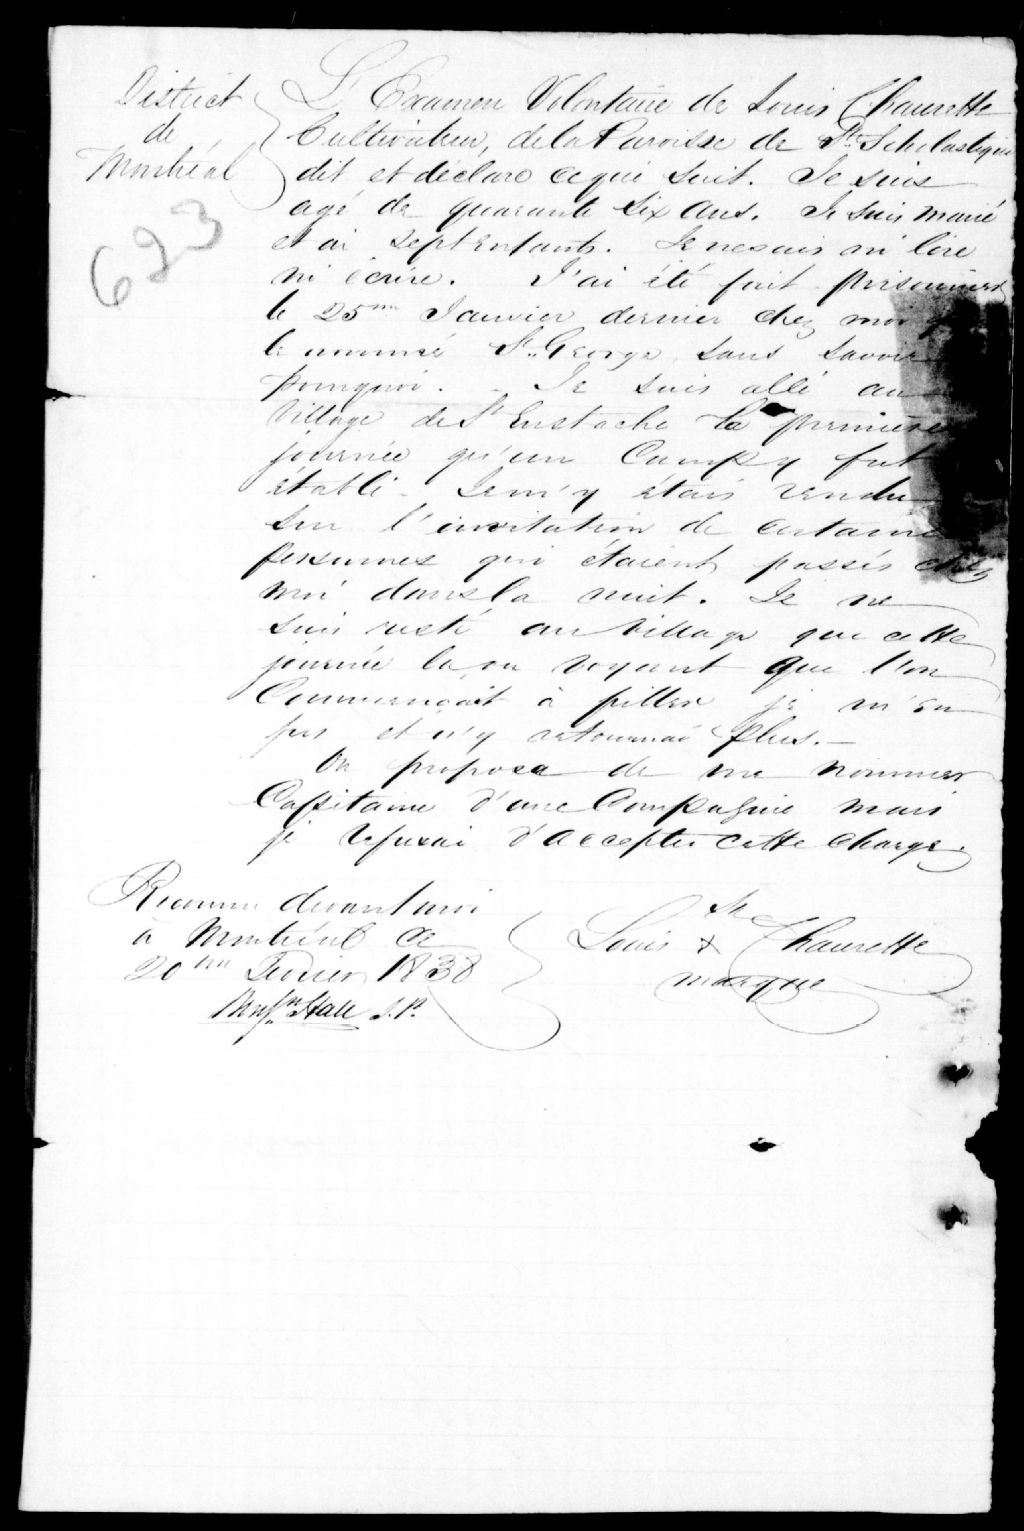 District
de
Montréal
623
L'Examen Volontaire de Louis Chaurette
Cultivateur, de la Paroisse de Ste Scholastique
dit et déclare ce qui suit. Je suis
agé de quarante six ans. Je suis marié
et ai sept enfants. Je ne sais ni lire
ni écrire. J'ai été fait prisonnier
le 25me Janvier dernier chez moi
le nommé St. George sans savoir
pourquoi. - Je suis allé au
Village de St Eustache la première
journée qu'un Camp y fut
établi - Je m'y étais rendu
sur l'invitation de certaines
personnes qui étaient passés chez
moi dans la nuit. Je ne
suis resté au Village que cette
journée là, en voyant que l'on
Commençait à piller je m'en
fus et n'y retournai plus. -
On proposa de me nommer
Capitaine d'une Compagnie mais
je refusai d'accepter cette charge.
Reconnu devant moi
à Montréal ce
20me Fevrier 1838
Hall J.P.
sa
Louis x Chaurette
marque